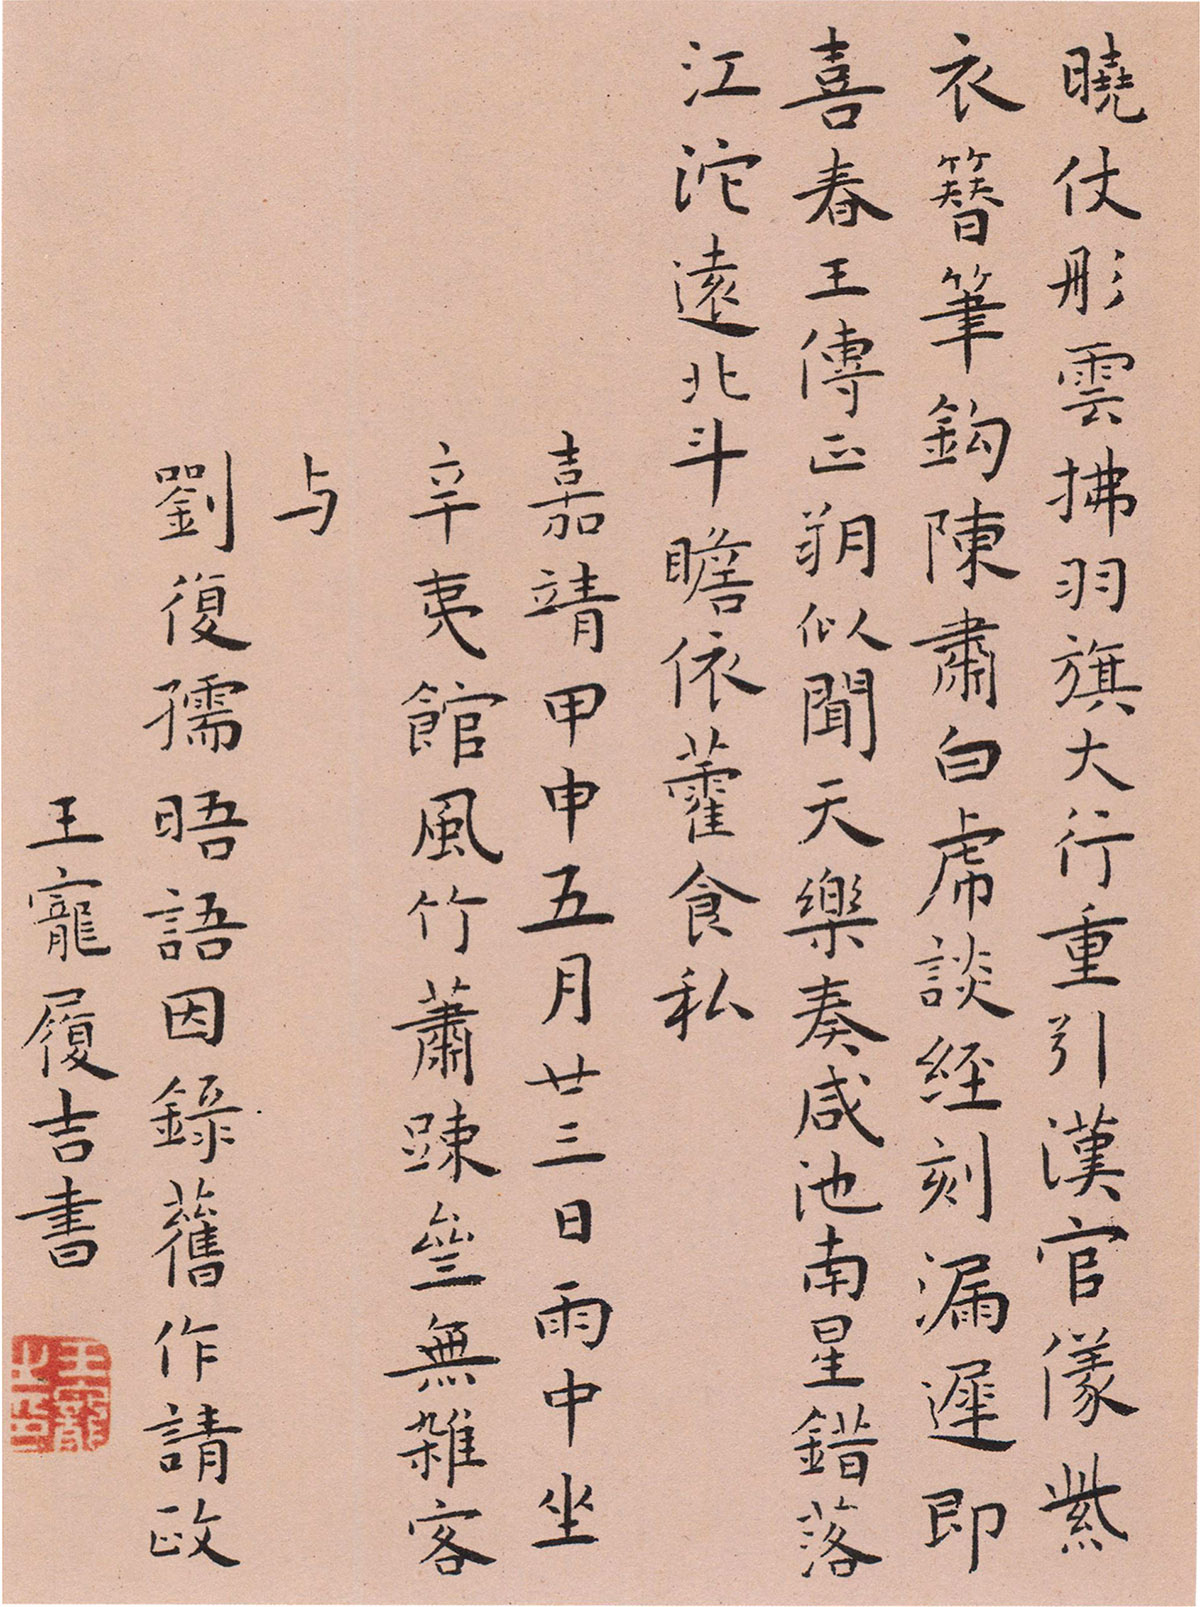 曉仗彤雲拂羽旗大行重引漢官儀紫
衣簪筆鈎陳肅白虎談經刻漏遲即
喜春王傳正朔似聞天樂奏咸池南星錯落
江沱遠北斗瞻依藿食私
嘉靖甲申五月廿三日雨中坐
辛夷館風竹蕭踈亝無雜客
与
劉復孺晤語因錄舊作請政
王寵履吉書
王寵之印